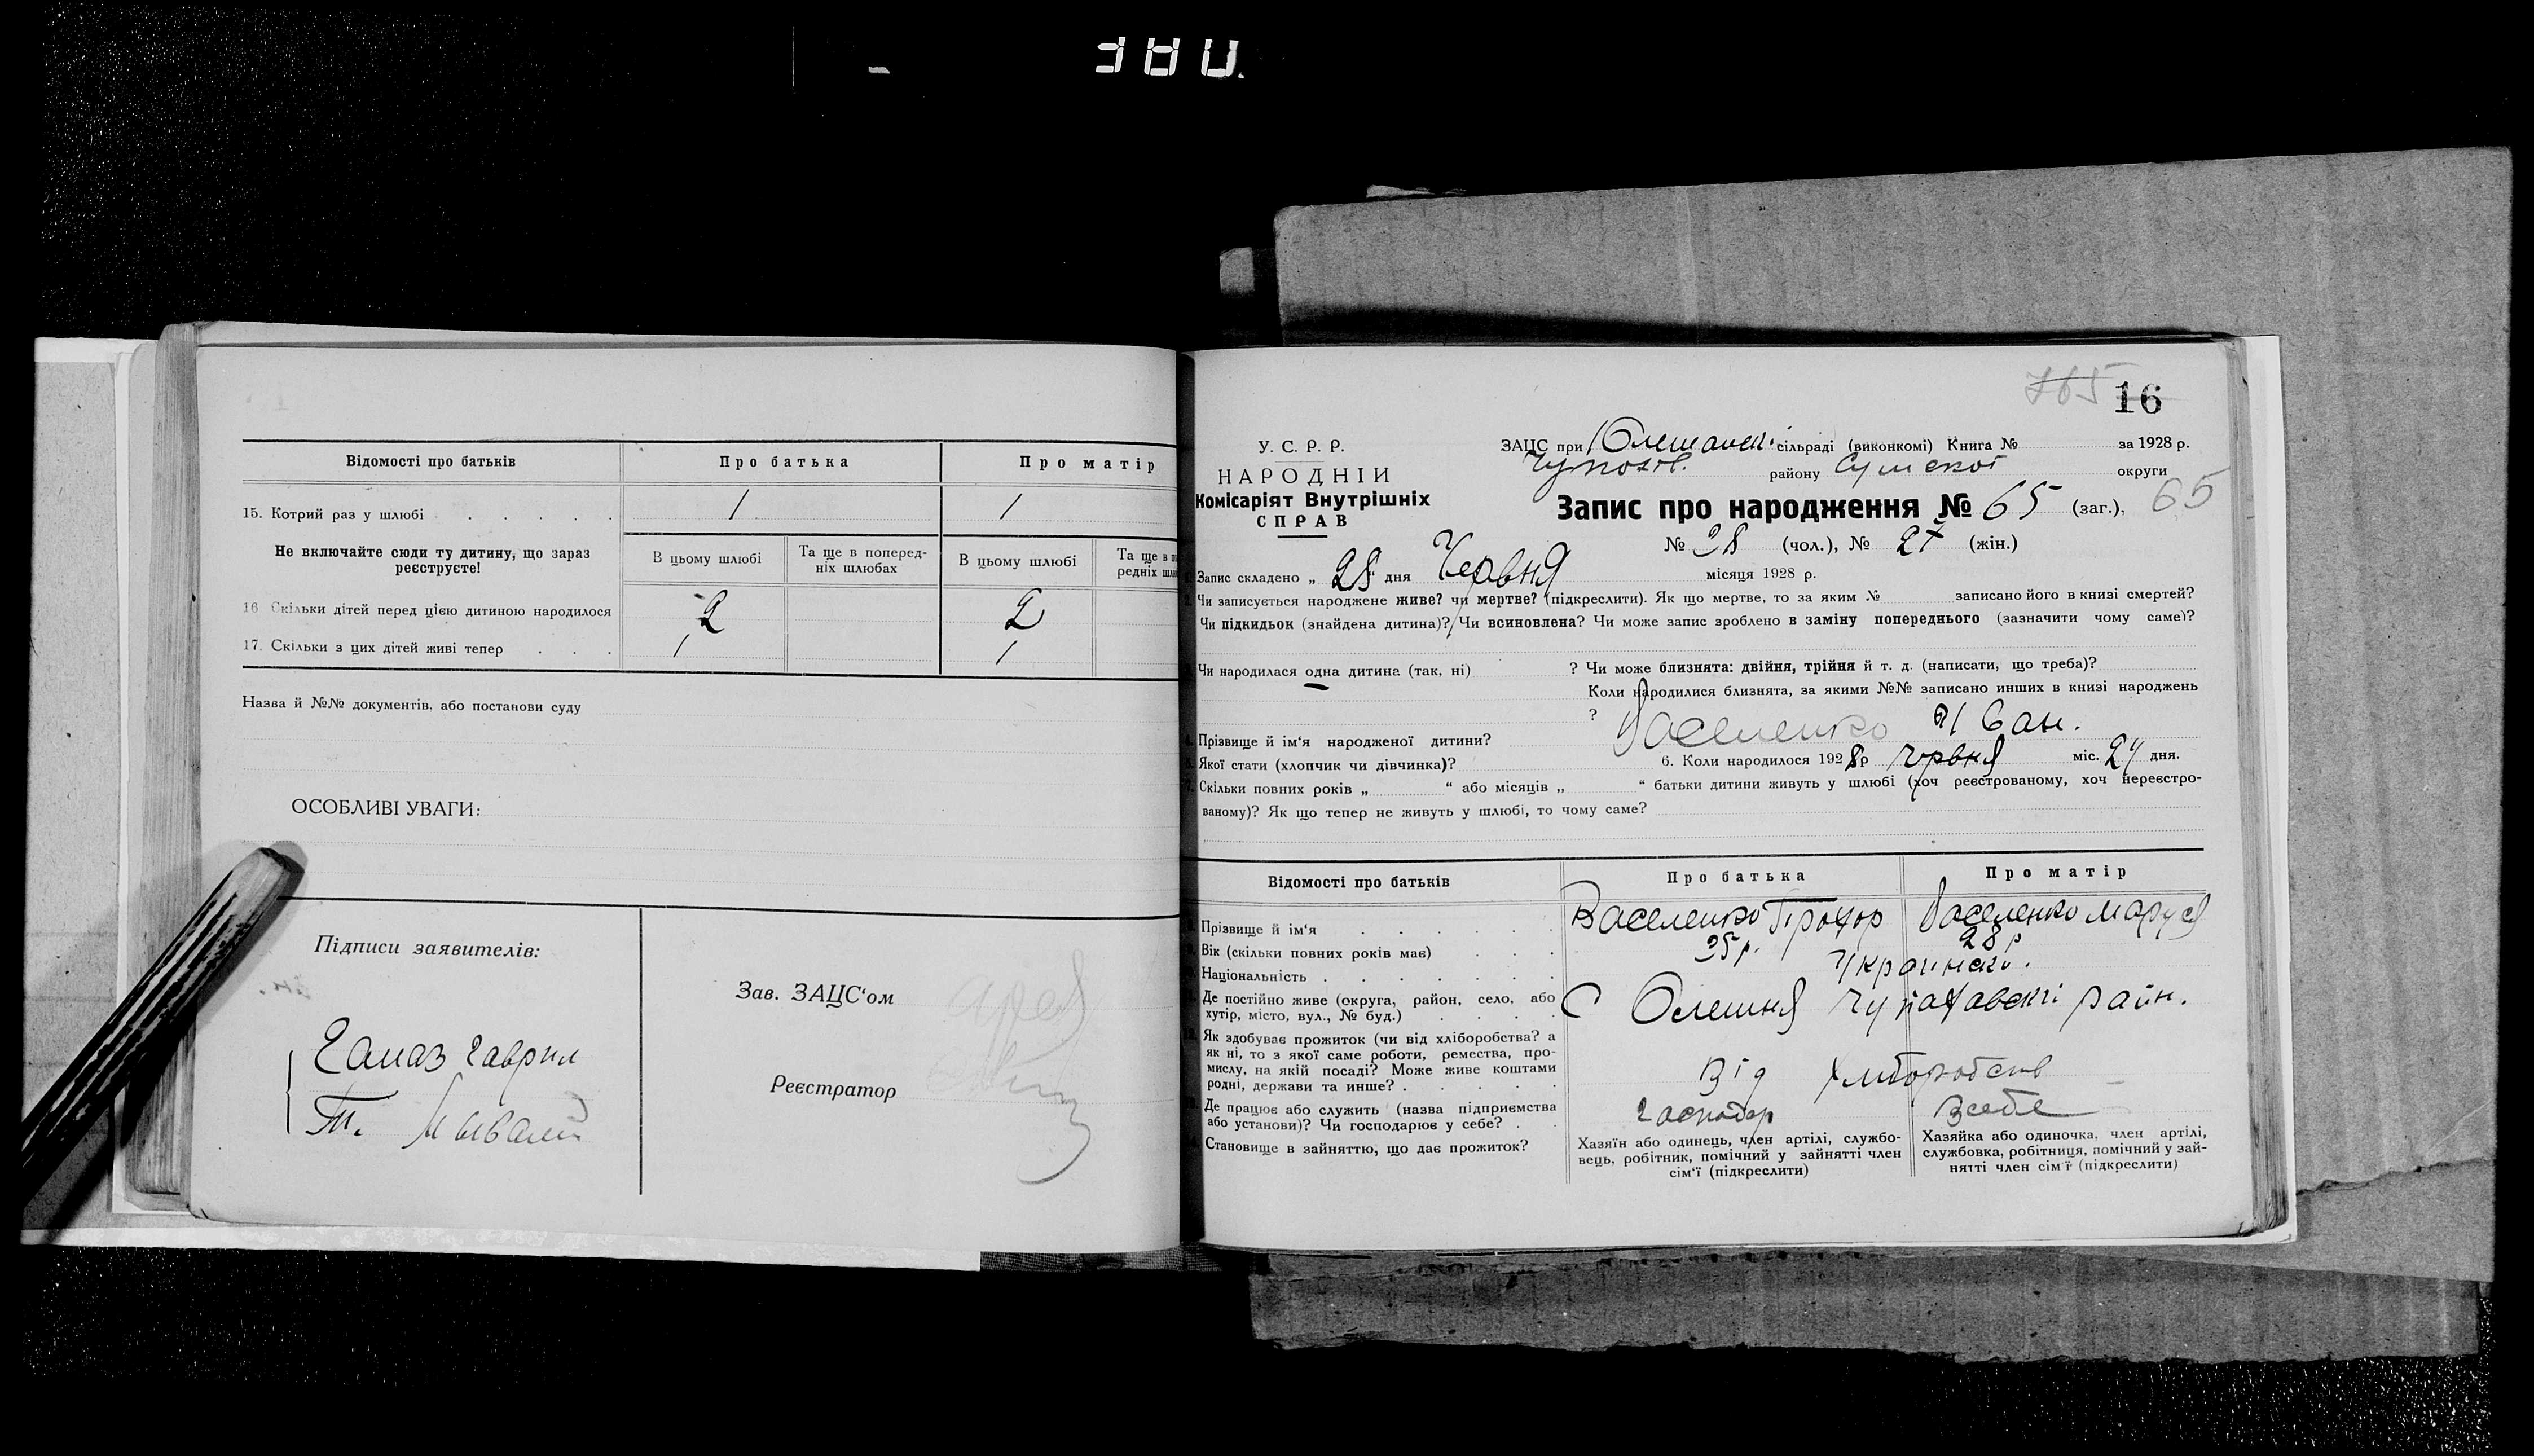 Відомості про батьків
Про батька
Про матір
15. Котрий раз у шлюбі
1
1
Не включайте сюди ту дитину, що зараз реєструєте!
В цьому шлюбі
Та ще в поперед-
ніх шлюбах
В цьому шлюбі
Та ще в по
редніх шлю
16. Скільки дітей перед цією дитиною народилося
2
2
17. Скільки з цих дітей живі тепер
1
1
Назва й №№ документів, або постанови суду
ОСОБЛИВІ УВАГИ:
Підписи заявителів:
Гамаз Гаврил
Зав. ЗАЦС'ом
Реєстратор
765 16
У. С. Р. Р.
НАРОДНІЙ
Комісаріят Внутрішніх
СПРАВ
ЗАЦС при Олешанскі сільраді (виконкомі) Книга № за 1928 р.
Чупахів. району Сумскої округи
Запис про народження № 65 (заг.), 65
№ 38 (чол.), № 27 (жін.)
Запис складено „ 28 “ дня Червня місяця 1928 р.
Чи записується народжене живе? чи мертве? (підкреслити). Як що мертве, то за яким № записано його в книзі смертей?
Чи підкидьок (знайдена дитина)? Чи всиновлена? Чи може запис зроблено в заміну попереднього (зазначити чому саме)?
Чи народилася одна дитина (так, ні) ? Чи може близнята: двійня, трійня й т. д. (написати, що треба)?
Коли народилися близнята, за якими №№ записано инших в книзі народжень
?
Прізвище й ім'я народженої дитини? Василенко Иван.
Якої стати (хлопчик чи дівчинка)? 6. Коли народилося 1928 р червня міс. 24 дня.
Скільки повних років „ “ або місяців „ “ батьки дитини живуть у шлюбі (хоч реєстрованому, хоч нереєстро-
ваному)? Як що тепер не живуть у шлюбі, то чому саме?
Відомості про батьків
Про батька
Про матір
Прізвище й ім'я
Васеленко Прохор
Васеленко Маруся
Вік (скільки повних років має)
25 р.
28 р
Національність
Украинскі.
Де постійно живе (округа, район, село, або
хутір, місто, вул., № буд.)
С Олешня Чупахавскі район.
Як здобуває прожиток (чи від хліборобства? а
як ні, то з якої саме роботи, ремества, про-
мислу, на якій посаді? Може живе коштами
родні, держави та инше?
Від Хліборобств
Де працює або служить (назва підприємства
або установи)? Чи господарює у себе?
Господар
Всебе
Становище в зайняттю, що дає прожиток?
Хазяїн або одинець, член артілі, службо-
вець, робітник, помічний у зайнятті член
сім'ї (підкреслити)
Хазяйка або одиночка, член артілі,
службовка, робітниця, помічний у зай-
нятті член сім'ї (підкреслити)